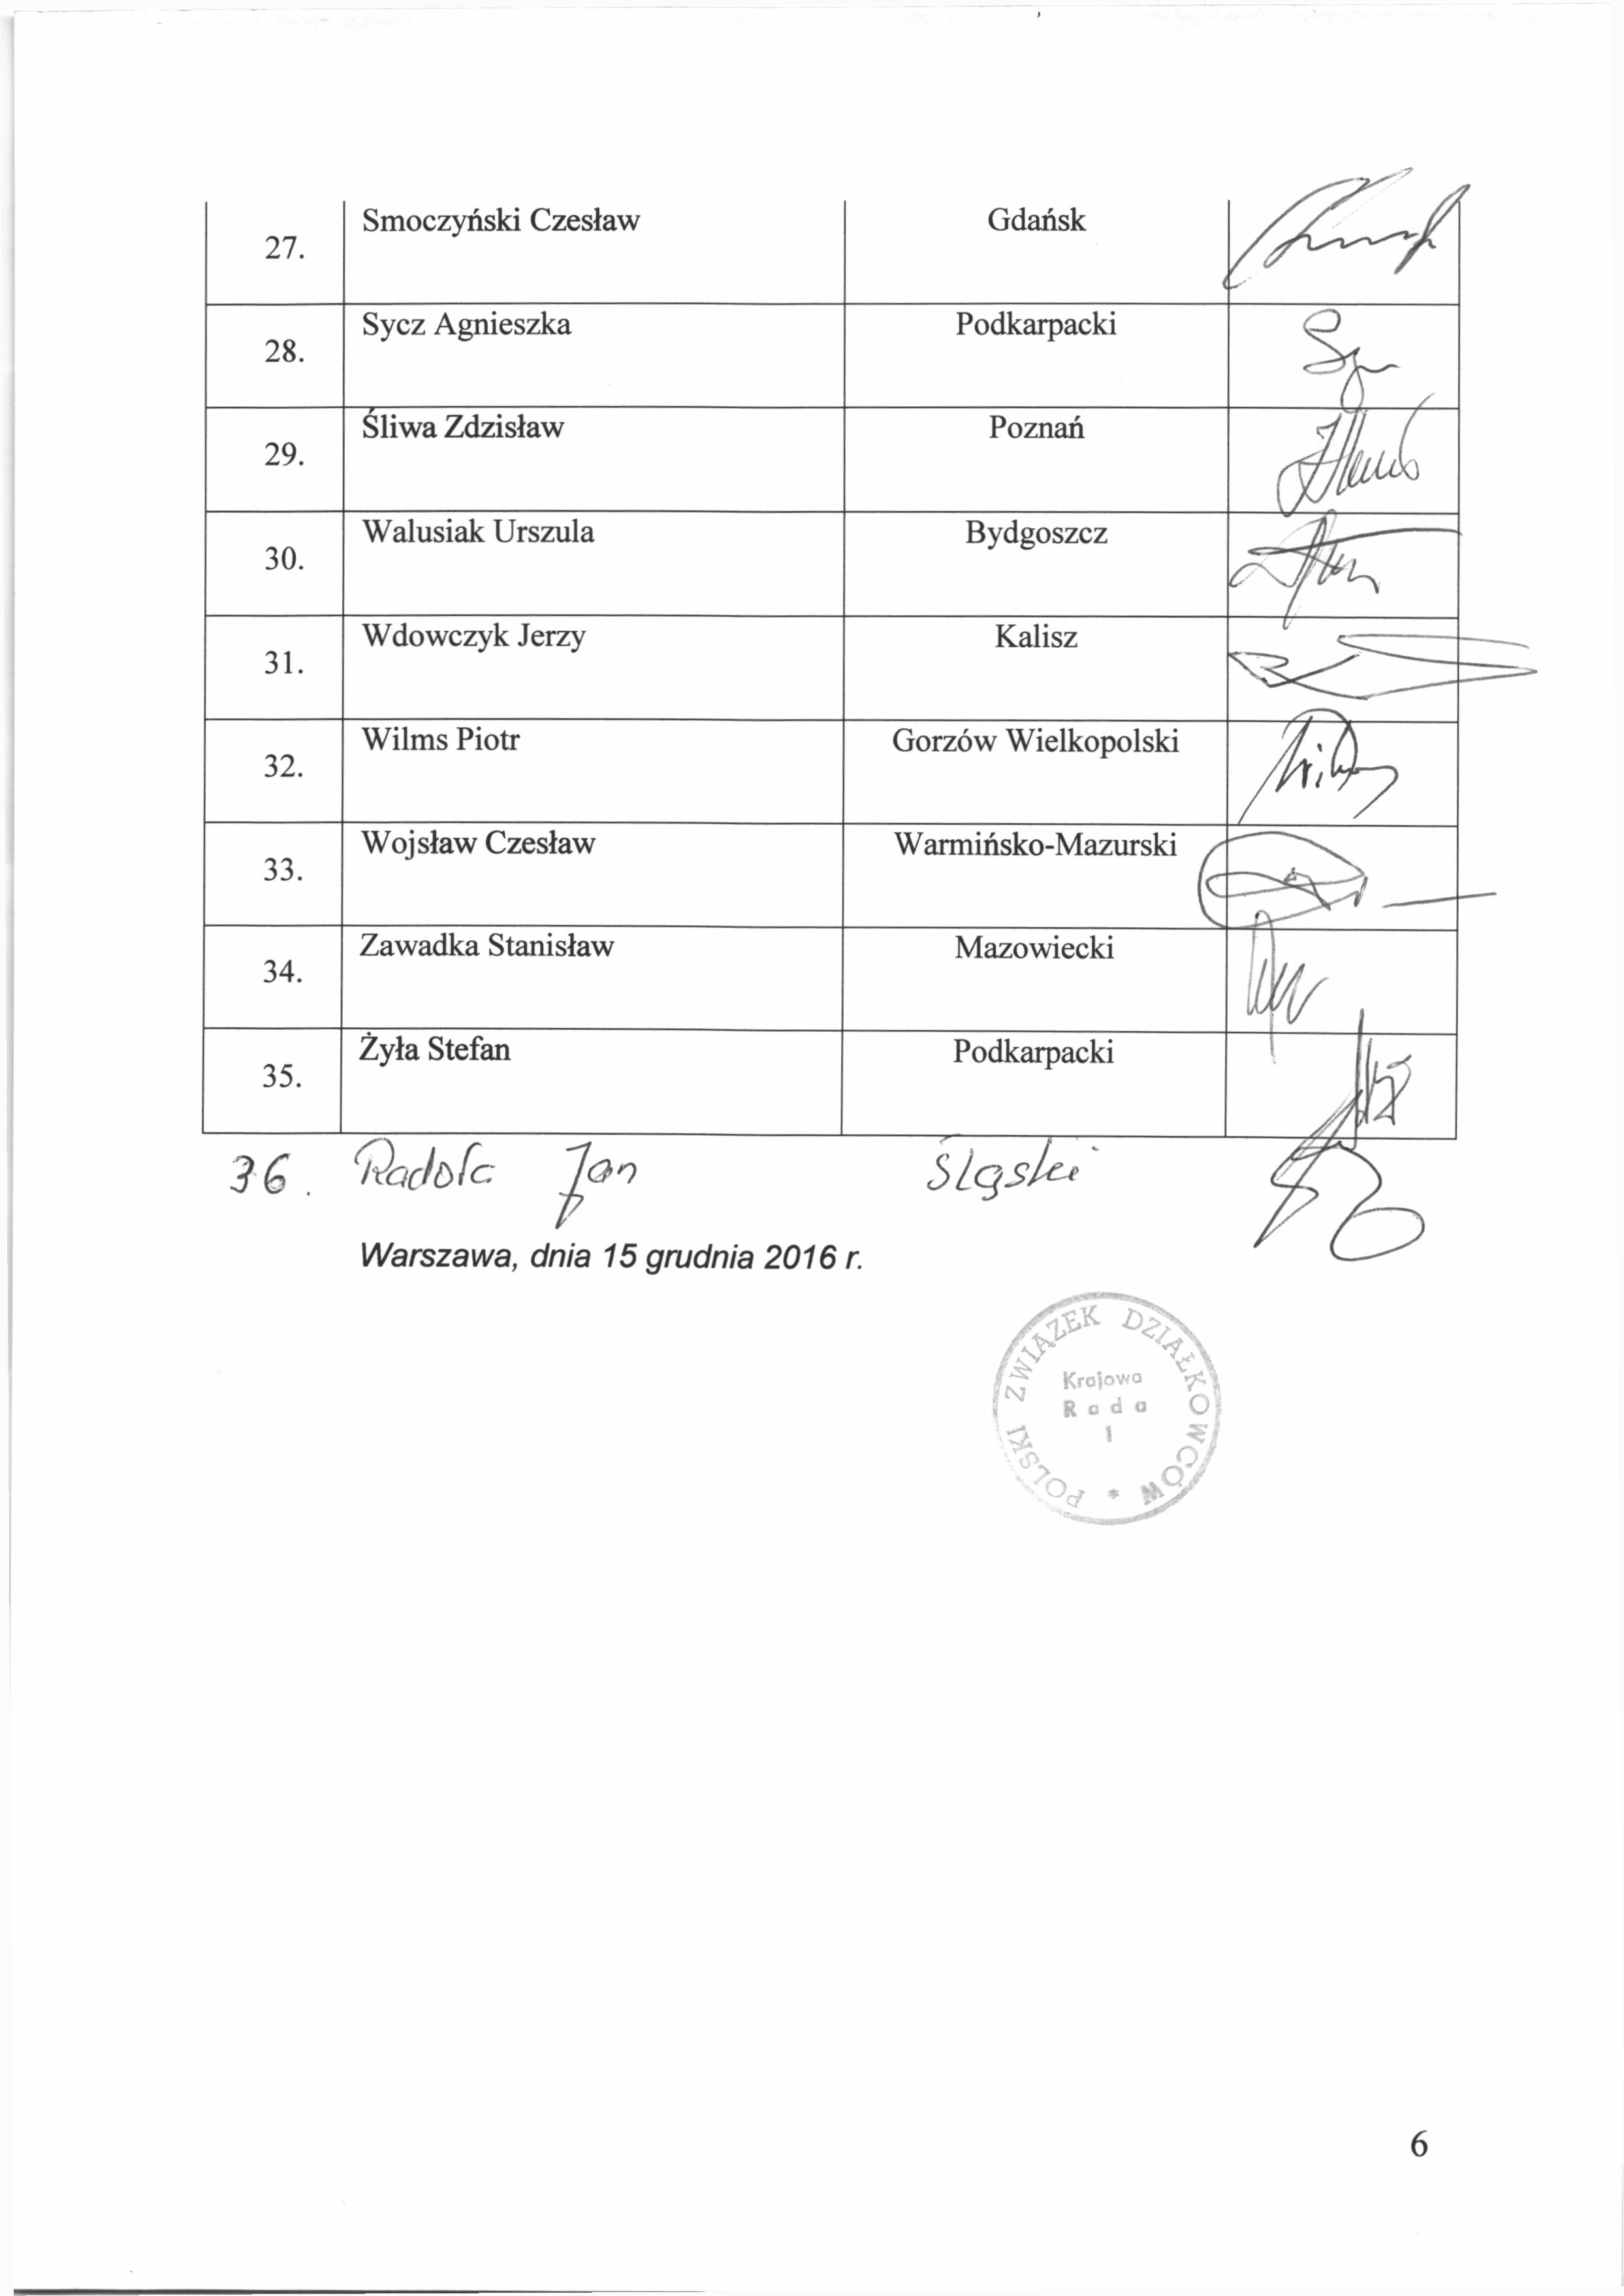 27. Smoczyński Czesław Gdańsk
28. Sycz Agnieszka Podkarpacki
29. Śliwa Zdzisław Poznań
30. Walusiak Urszula Bydgoszcz
31. Wdowczyk Jerzy Kalisz
32. Wilms Piotr Gorzów Wielkopolski
33. Wojsław Czesław Warmińsko-Mazurski
34. Zawadka Stanisław Mazowiecki
35. Żyła Stefan Podkarpacki
36. Jan Śląski
Warszawa, dnia 15 grudnia 2016 r.
POLSKI ZWIĄZEK DZIAŁKOWCÓW *
Krajowa
Rada
1
6